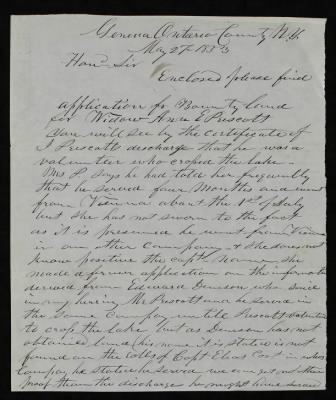 Geneva Ontario County N.Y.
May 27 1853
Hond Sir
Enclosed please find
application for Bounty land
for Widow Ann E Prescott
You will see by the certificate of
J Prescotts discharge that he was a
volunteer who crossed the lake -
Mrs P says he had told her frequently
that he served four Months and went
from Vienna about the 1st of July
but she has not sworn to the fact
as it is presumed he went from Vienna
in an other Company & She does not
know positive the capts name she
made a former application on the information
derived from Edward Denison who since
in any hiring Mr Prescott and he served in
the Same Company untill Prescott volunteered
to cross the lake but as Denison has not
obtained land (his name it is stated is not
found on the rolls of Capt Elias Cost in whose
Company he states he served we can get no other
proof than the discharge he might have served